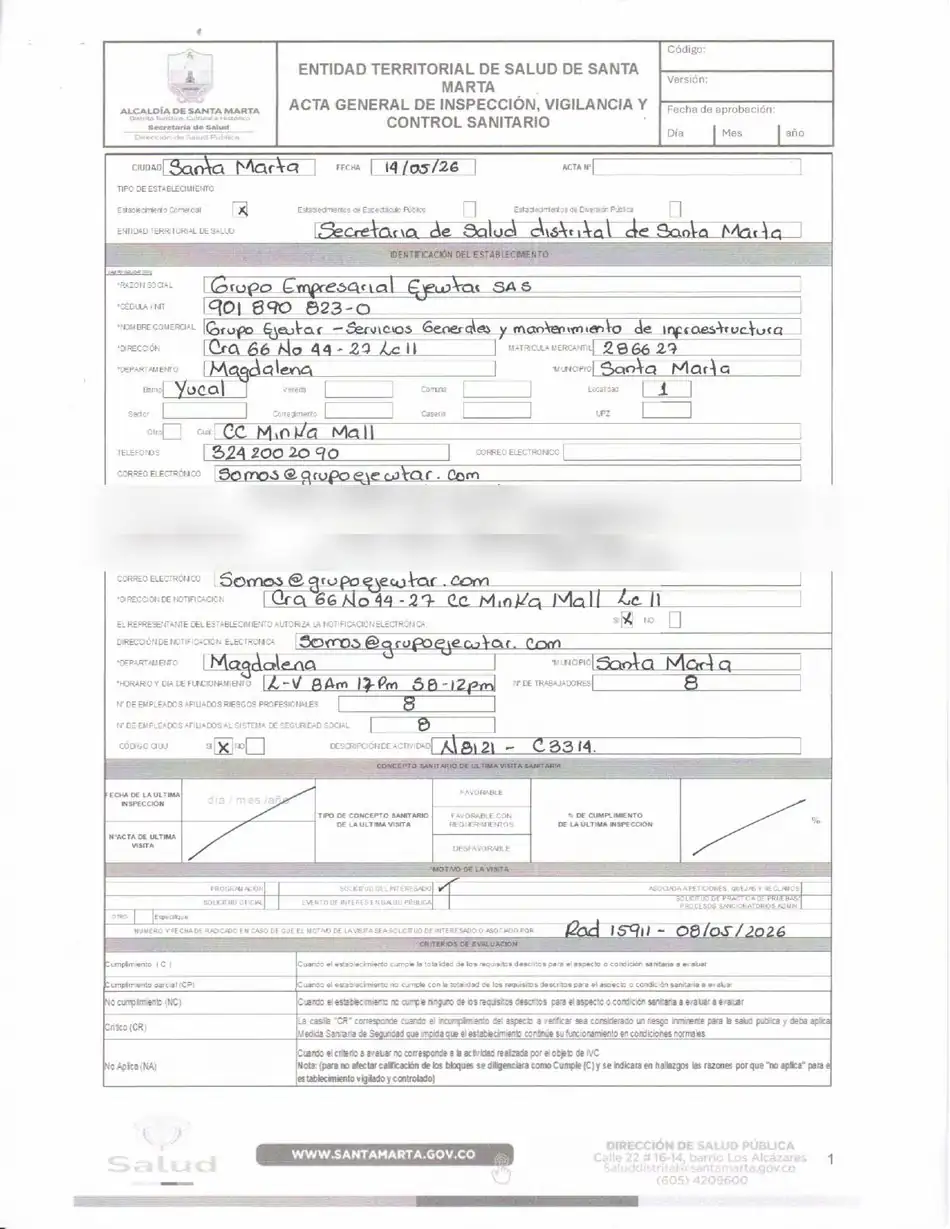 ALCALDÍA DE SANTA MARTA
Distrito Turístico, Cultural e Histórico
Secretaría de Salud
Dirección de Salud Pública
ENTIDAD TERRITORIAL DE SALUD DE SANTA MARTA
ACTA GENERAL DE INSPECCIÓN, VIGILANCIA Y CONTROL SANITARIO
Código:
Versión:
Fecha de aprobación:
Día Mes año
CIUDAD Santa Marta FECHA 14/05/26 ACTA N°
TIPO DE ESTABLECIMIENTO
Establecimiento Comercial X Establecimientos de Espectáculo Público Establecimientos de Diversión Pública
ENTIDAD TERRITORIAL DE SALUD Secretaria de Salud distrital de Santa Marta
IDENTIFICACIÓN DEL ESTABLECIMIENTO
*RAZON SOCIAL Grupo Empresarial Ejewtar SAS
*CÉDULA / NIT 901 890 823-0
*NOMBRE COMERCIAL Grupo Ejewtar - Servicios Generales y mantenimiento de infraestructura
*DIRECCIÓN Cra 66 No 44-27 Lc 11 MATRICULA MERCANTIL 286627
*DEPARTAMENTO Magdalena *MUNICIPIO Santa Marta
Barrio Yucal Vereda Comuna Localidad 1
Sector Corregimiento Caserío UPZ
Otro Cual: CC Minka Mall
TELEFONOS 324 200 20 90 CORREO ELECTRONICO
CORREO ELECTRÓNICO Somos@grupoejewtar.com
CORREO ELECTRÓNICO Somos@grupoejewtar.com
*DIRECCIÓN DE NOTIFICACIÓN Cra 66 No 44-27 CC Minka Mall Lc 11
EL REPRESENTANTE DEL ESTABLECIMIENTO AUTORIZA LA NOTIFICACIÓN ELECTRÓNICA: SI X NO
DIRECCIÓN DE NOTIFICACIÓN ELECTRONICA Somos@grupoejecwtar.com
*DEPARTAMENTO Magdalena *MUNICIPIO Santa Marta
*HORARIO Y DIA DE FUNCIONAMIENTO L-V 8Am 17Pm S8-12pm N° DE TRABAJADORES 8
N° DE EMPLEADOS AFILIADOS RIESGOS PROFESIONALES 8
N° DE EMPLEADOS AFILIADOS AL SISTEMA DE SEGURIDAD SOCIAL 8
CÓDIGO CIIU SI X NO DESCRIPCIÓN DE ACTIVIDAD N8121 - C3314.
CONCEPTO SANITARIO DE ULTIMA VISITA SANITARIA
FECHA DE LA ULTIMA INSPECCIÓN día / mes /año
N°ACTA DE ULTIMA VISITA
TIPO DE CONCEPTO SANITARIO DE LA ULTIMA VISITA
FAVORABLE
FAVORABLE CON REQUERIMIENTOS
DESFAVORABLE
% DE CUMPLIMIENTO DE LA ULTIMA INSPECCIÓN %
*MOTIVO DE LA VISITA
PROGRAMACIÓN SOLICITUD DEL INTERESADO ✓ ASOCIADA A PETICIONES, QUEJAS Y RECLAMOS
SOLICITUD OFICIAL EVENTO DE INTERES EN SALUD PÚBLICA SOLICITUD DE PRACTICA DE PRUEBAS/ PROCESOS SANCIONATORIOS ADMIN.
OTRO Especifique
NUMERO Y FECHA DE RADICADO EN CASO DE QUE EL MOTIVO DE LA VISITA SEA SOLICITUD DE INTERESADO O ASOCIADO POR Rad 15911 - 08/05/2026
CRITERIOS DE EVALUACION
Cumplimiento ( C ) Cuando el establecimiento cumple la totalidad de los requisitos descritos para el aspecto o condición sanitaria a evaluar
Cumplimiento parcial (CP) Cuando el establecimiento no cumple con la totalidad de los requisitos descritos para el aspecto o condición sanitaria a evaluar
No cumplimiento (NC) Cuando el establecimiento no cumple ninguno de los requisitos descritos para el aspecto o condición sanitaria a evaluar a evaluar
Critico (CR) La casilla "CR" corresponde cuando el incumplimiento del aspecto a verificar sea considerado un riesgo inminente para la salud publica y deba aplica
Medida Sanitaria de Seguridad que impida que el establecimiento continúe su funcionamiento en condiciones normales
No Aplica (NA) Cuando el criterio a avaluar no corresponde a la actividad realizada por el objeto de IVC
Nota: (para no afectar calificación de los bloques se diligenciara como Cumple (C) y se indicara en hallazgos las razones por que "no aplica" para e
establecimiento vigilado y controlado)
Salud
WWW.SANTAMARTA.GOV.CO
DIRECCIÓN DE SALUD PÚBLICA
Calle 22 # 16-14, barrio Los Alcázares
Saluddistrital@santamarta.gov.co
(605) 4209600
1